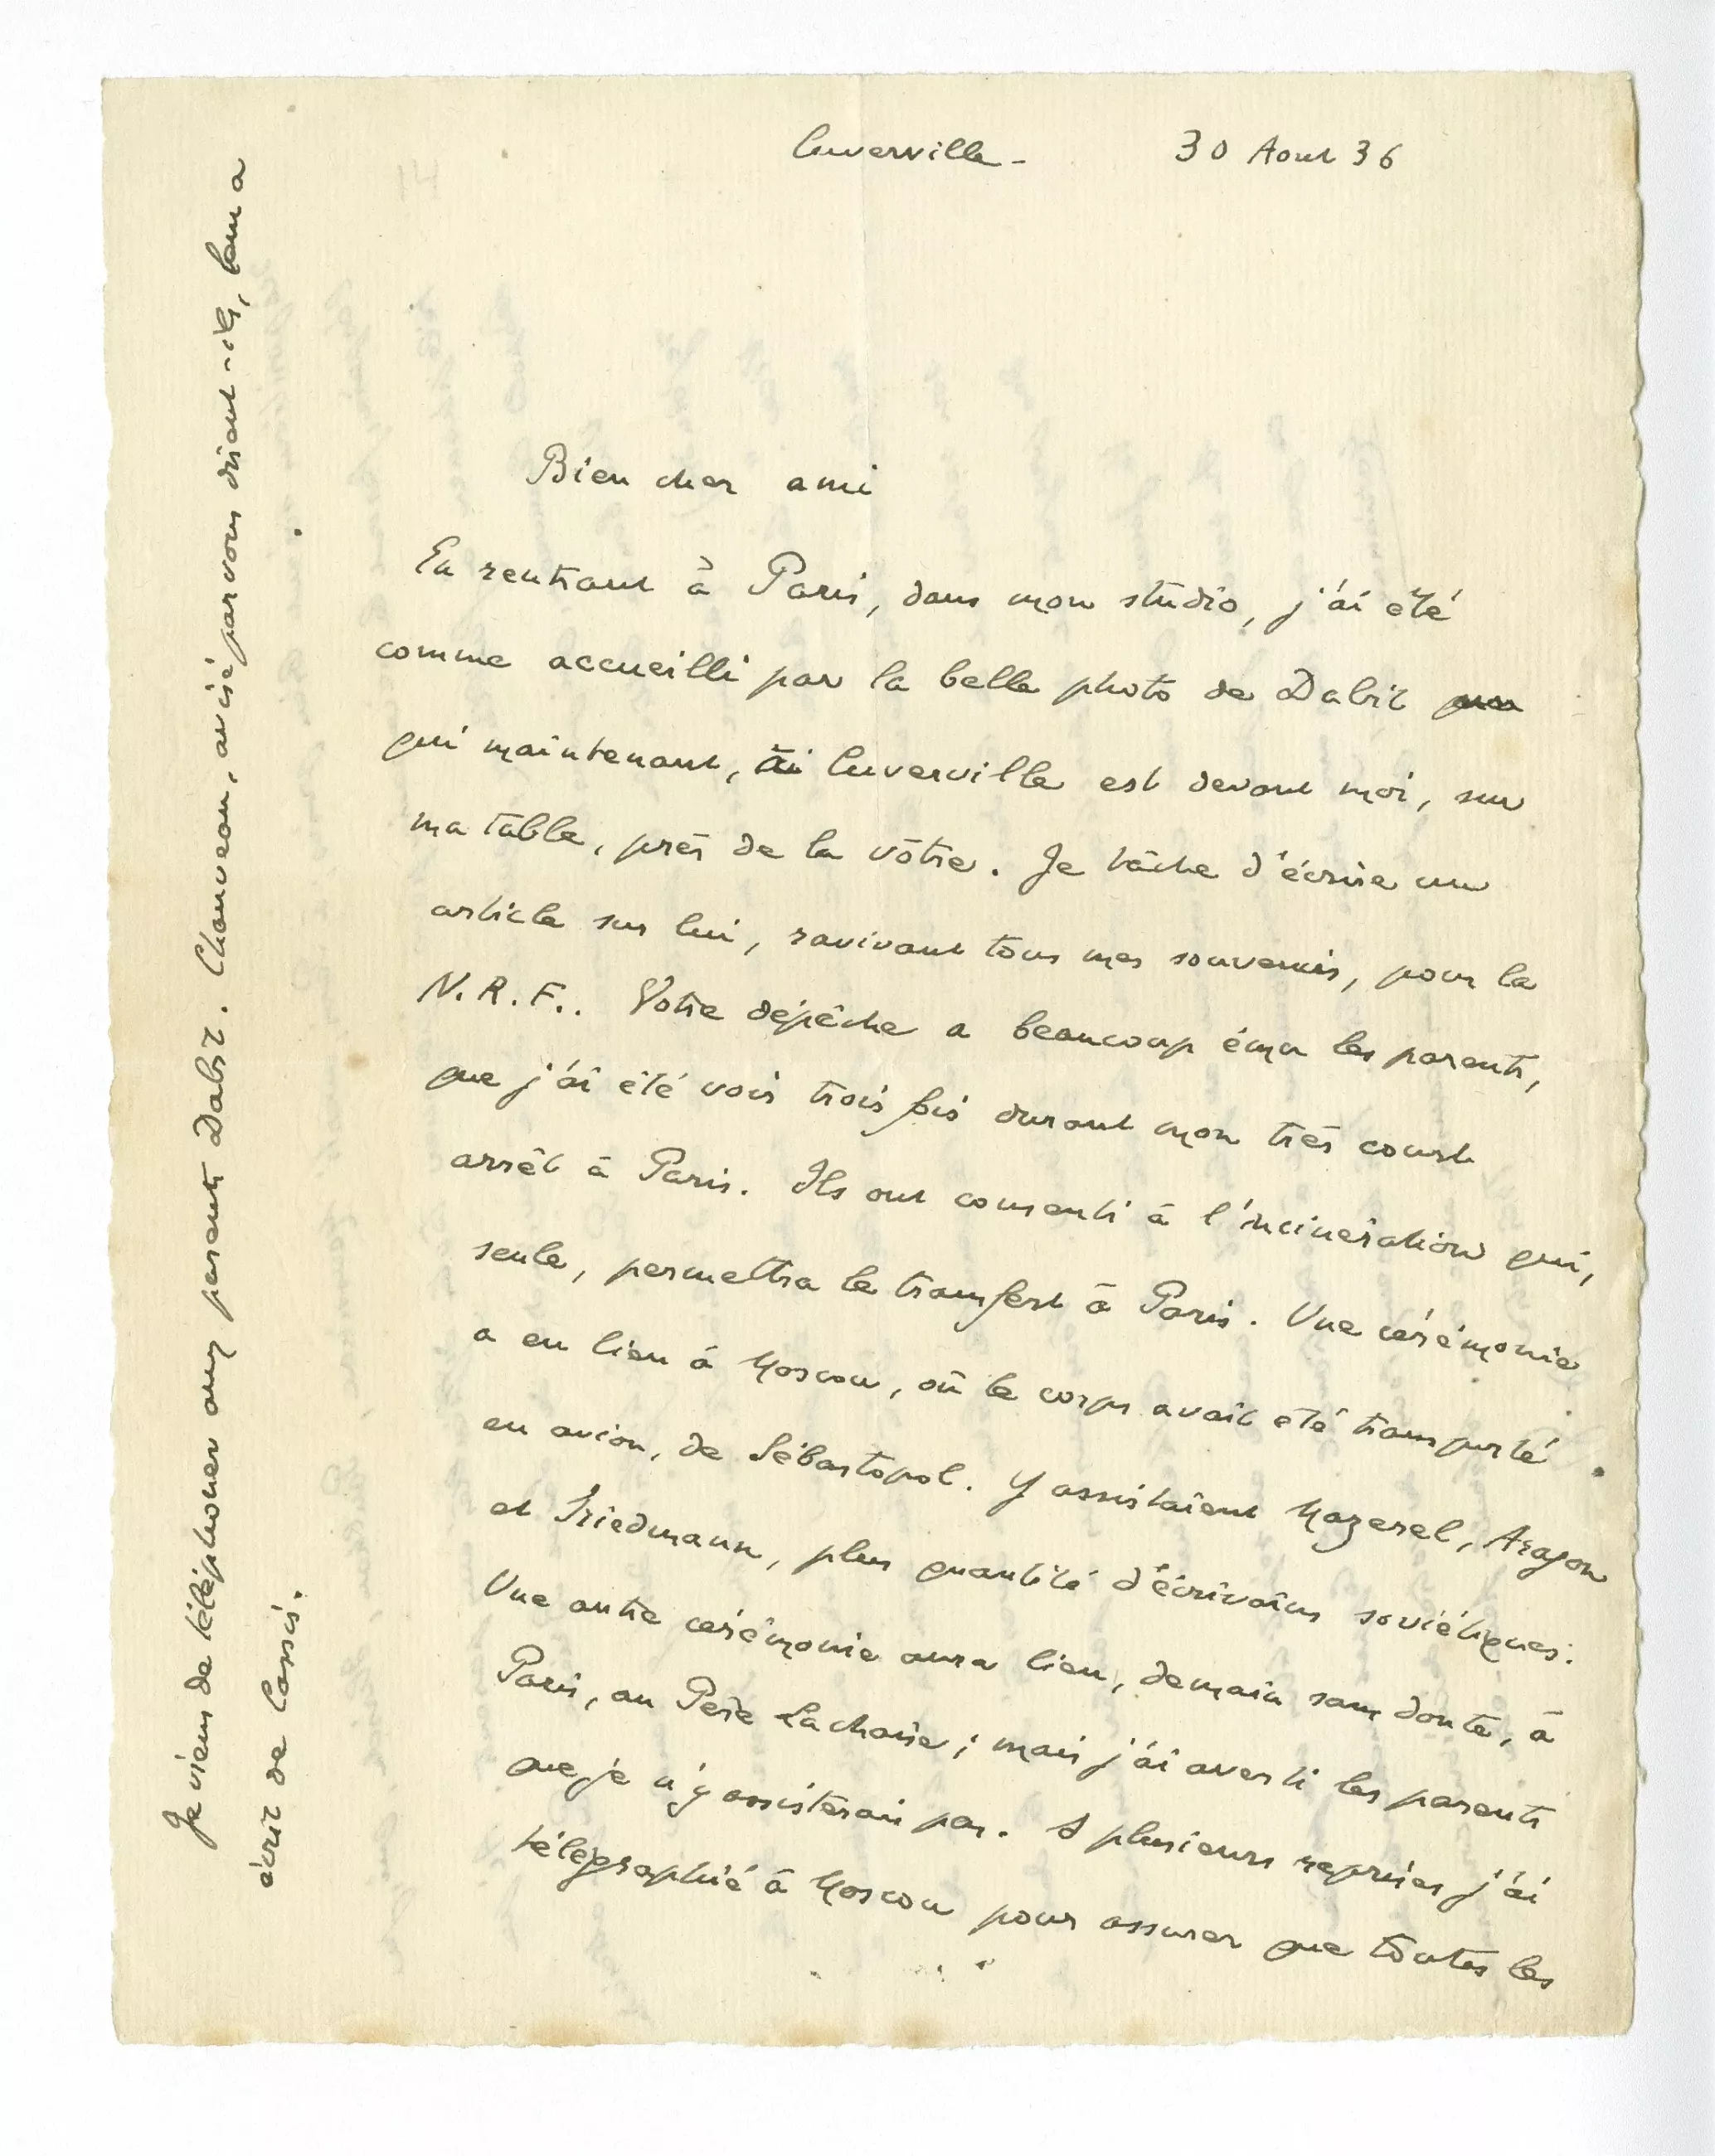 Cuverville - 30 Aout 36
Bien cher ami
En rentrant à Paris, dans mon studio, j'ai été
comme accueilli par la belle photo de Dabit
qui maintenant, à Cuverville est devant moi, sur
ma table, près de la vôtre. Je tâche d'écrire un
article sur lui, ravivant tous mes souvenirs, pour la
N.R.F.. Votre dépêche a beaucoup ému les parents,
que j'ai été voir trois fois durant mon très court
arrêt à Paris. Ils ont consenti à l'incinération qui,
seule, permettra le transfert à Paris. Une cérémonie
a eu lieu à Moscou, où le corps avait été transporté
en avion, de Sébastopol. Y assistaient Mazerel, Aragon
et Friedmann, plus quantité d'écrivains soviétiques.
Une autre cérémonie aura lieu, demain sans doute, à
Paris, au Père Lachaise ; mais j'ai averti les parents
que je n'y assisterai pas. A plusieurs reprises j'ai
télégraphié à Moscou pour assurer que toutes les
Je viens de téléphoner aux parents Dabit. Chauveau, avisé par vous disent-ils, leur a
écrit de Cassis.